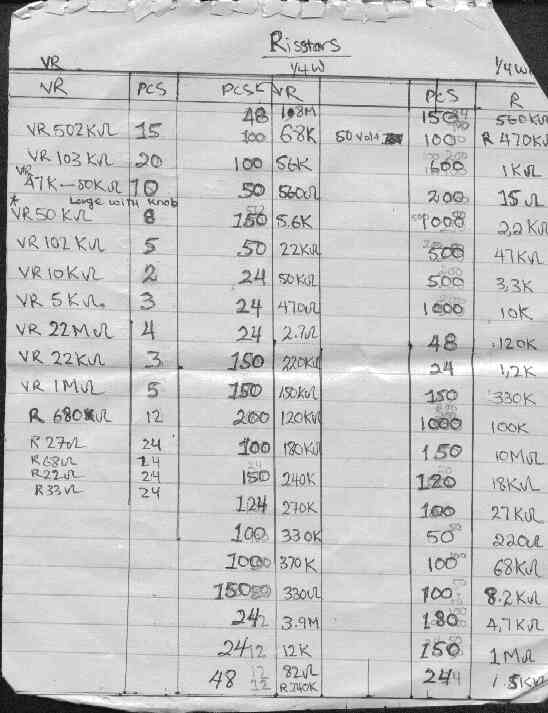 Risstors
VR 1/4 W 1/4 W
VR PCS PCS VR PCS R
48 1.8M 150 560KΩ
VR 502KΩ 15 100 68K 50 Volt 100 R 470KΩ
VR 103KΩ 20 100 56K 600 1KΩ
VR 47K-50KΩ 10 50 560Ω 200 15Ω
* Large with knob
VR 50KΩ 8 150 5.6K 1000 2,2KΩ
VR 102KΩ 5 50 22KΩ 500 47KΩ
VR 10KΩ 2 24 50KΩ 500 3,3K
VR 5KΩ 3 24 470Ω 1000 10K
VR 22MΩ 4 24 2.7Ω 48 120K
VR 22KΩ 3 150 220KΩ 24 1,2K
VR 1MΩ 5 150 150KΩ 150 330K
R 680KΩ 12 200 120KΩ 1000 100K
R 27Ω 24 100 180KΩ 150 10MΩ
R 68Ω 24
R 22Ω 24 150 240K 120 18KΩ
R 33Ω 24
124 270K 100 27KΩ
100 330K 50 220Ω
1000 370K 100 68KΩ
150 330Ω 100 8.2KΩ
24 3.9M 180 4,7KΩ
24 12 12K 150 1MΩ
48 12 82Ω 24 1.5KΩ
12 R 240K